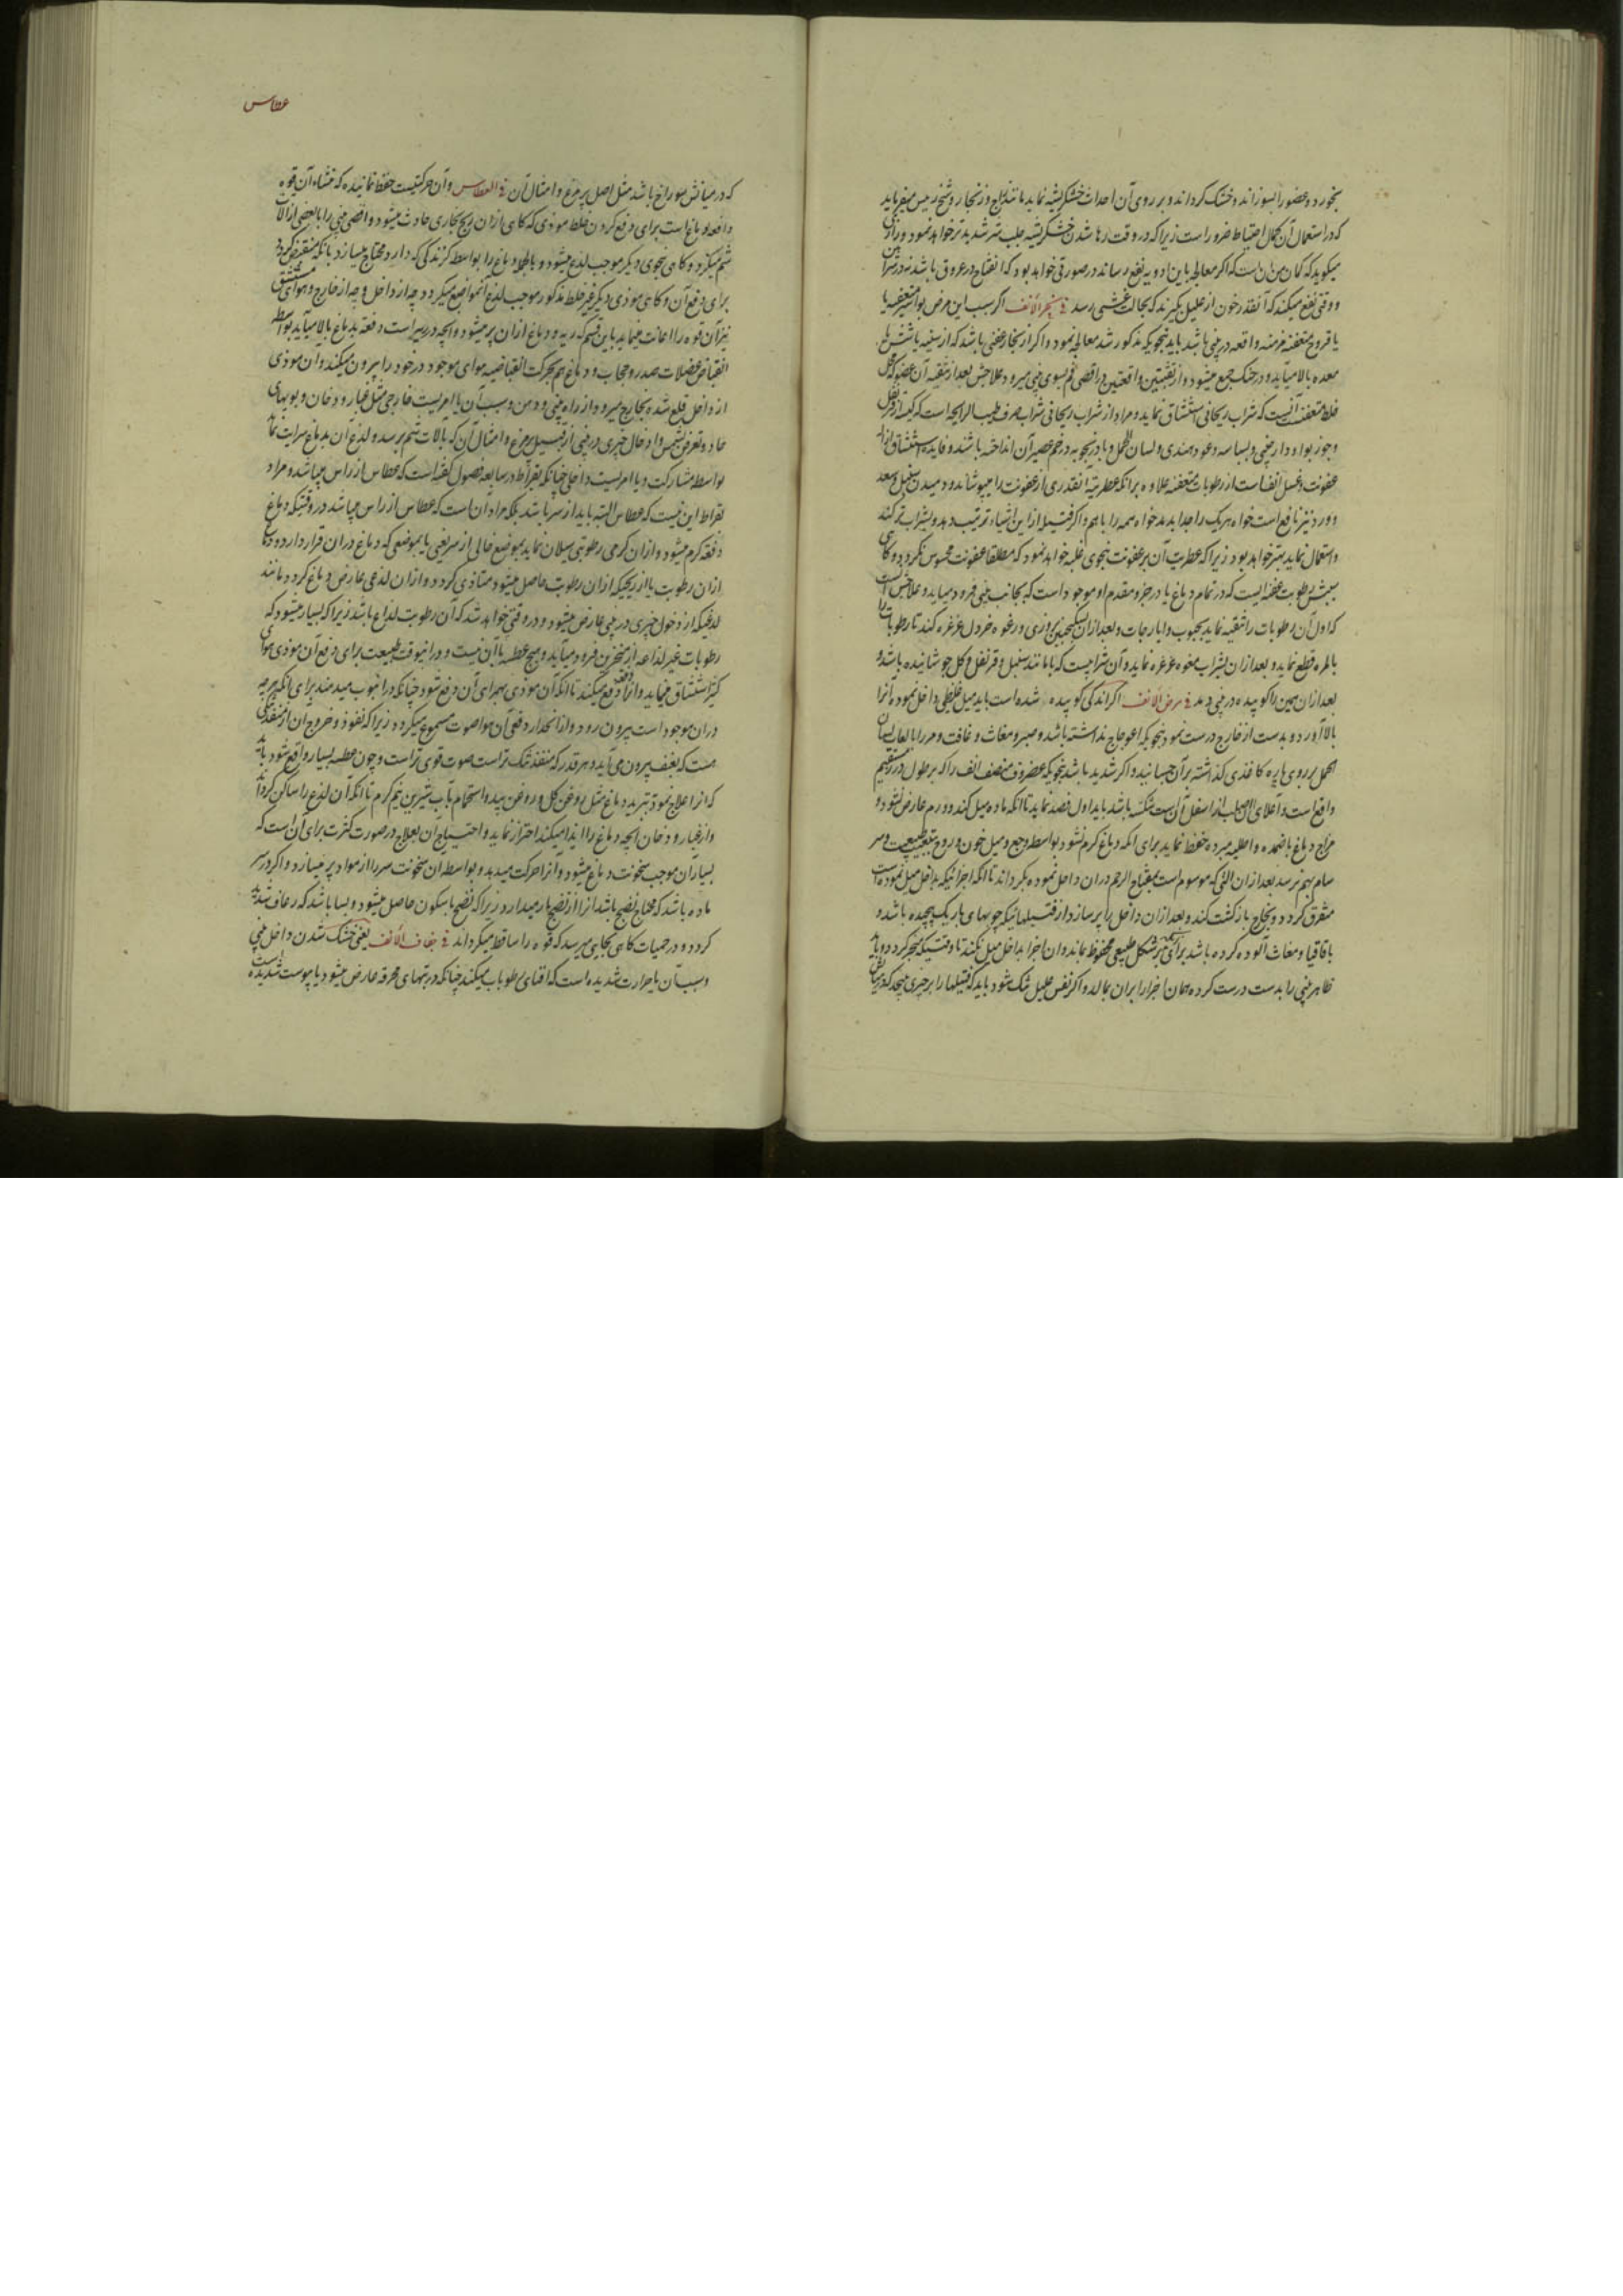 بخورد و عضو را بسوزاند و خشک کرداند و بر روی آن احداث خشکریشه نماید مانند زاج و زنجار و شیخ رئیس میفرماید
که در استعمال آن کمال احتیاط ضرور است زیرا که در وقت رها شدن خشکریشه جلب شر شدیدتر خواهد نمود و رازی
میکوید که کمان من آن است که اکر معالجه باین ادویه نفع رساند در صورتی خواهد بود که انفتاح در عروق باشد نه در شرائین
و وقتی نفع میکند که آنقدر خون از علیل بکیرند که بحالت غشی رسد فی بخر الأنف اکر سبب این مرض بواسیر متعفنه یا
یا قروح متعفنه مزمنه واقعه در بینی باشد باید بنحویکه مذکور شد معالجه نمود و اکر از بخار عفنی باشد که از سینه یا شش یا
معده بالا میآید و در حنک جمع میشود و از ثقبتین واقعتین در اقصی فم بسوی بینی میرود علاجش بعد از تنقیه آن عضو که محل
خلط متعفنست آنست که شراب ریحانی استنشاق نماید و مراد از شراب ریحانی شراب صرف طیب الرایحه است که کیسه از قرنفل
و جوز بوا و دارچینی و بسباسه و عود هندی و لسان الحمل و بادرنجبویه در خم عصیر آن انداخته باشند و فایده استنشاق ازاله
عفونت و غسل انف است از رطوبات متعفنه علاوه برانکه عطریة آنقدری از عفونت را میپوشاند و دمیدن سنبل و سعد
و ورد نیز نافع است خواه هر یک را جدا بدمد خواه همه را با هم و اکر فتیله از این اشیاء ترتیب دهد و بشراب تر کند
و استعمال نماید بهتر خواهد بود زیرا که عطریت آن بر عفونت بنحوی غلبه خواهد نمود که مطلقا عفونت محسوس نکردد و کاهی
سببش رطوبت عفنه ایست که در تمام دماغ یا در جزو مقدم او موجود است که بجانب بینی فرود میآید و علاجش آنست
که اول آن رطوبات را تنقیه نماید بحبوب و ایارجات و بعد از آن بسکنجبین بزوری و رغوه خردل غرغره کند تا رطوبات را
بالمره قطع نماید و بعد از آن بشراب مفوه غرغره نماید و آن شرابیست که با مانند سنبل و قرنفل و کل جوشانیده باشد و
بعد از آن همین را کوبیده در بینی دمد فی رض الأنف اکر اندکی کوبیده شده است باید میل غلیظی داخل نموده آنرا
بالا آورد و بدست از خارج درست نمود بنحویکه اعوجاج نداشته باشد و صبر و مغاث و غافت و مر را با لعاب لسان
الحمل بر روی پاره کاغذی کذاشته بر آن چسبانید و اکر شدید باشد بنحویکه غضروف منصف انف را که بر طول درز سهمی
واقع است و اعلای آن اصلب از اسفل آن است شکسته باشد باید اول فصد نماید تا آنکه ماده میل نکند و ورم عارض نشود و
مزاج دماغ باضمده و اطلیه مبرده حفظ نماید برای آنکه دماغ کرم نشود بواسطه وجع و میل خون و روح بتبعیت طبیعت و سر
سام بهم نرسد بعد از آن آلتی که موسوم است بمفتاح الرحم در آن داخل نموده بکرداند تا آنکه اجزائیکه بداخل میل نموده است
متفرق کردد و بخارج بازکشت کند و بعد از آن داخل را پر سازد از فتیلهائیکه چوبهای باریک پیچیده باشد و
باقاقیا و مغاث آلوده کرده باشد برای آنکه بینی بر شکل طبیعی محفوظ بماند و آن اجزا بداخل میل نکنند تا وقتیکه منجبر کردد و باید
ظاهر بینی را بدست درست کرده همان اجزا را بر آن بمالد و اکر نفس علیل تنک شود باید که فتیلها را بر چیزی پیچد که در میانش
عطاس
که در میانش سوراخ باشد مثل اصل پر مرغ و امثال آن فی العطاس و آن حرکتیست حفظ نمانیده که منشاء آن قوه
دافعه دماغ است برای دفع کردن خلط موذی که کاهی از آن ریح بخاری حادث میشود و اقصی بینی را با بعضی از آلات
شم میکزد و کاهی بنحوی دیکر موجب لذع میشود و بالجمله دماغ را بواسطه کزندکی که دارد محتاج میسازد بانکه منقبض کردد
برای دفع آن و کاهی موذی دیکر غیر خلط مذکور موجب لذع آنمواضع میکردد چه از داخل و چه از خارج و هوای مستنشق
نیز آن قوه را اعانت مینماید باین قسم که ریه و دماغ از آن پر میشود و آنچه در ریه است دفعة بدماغ بالا میآید بواسطه
انقباض عضلات صدر و حجاب و دماغ هم بحرکت انقباضیه هوای موجود در خود را بیرون میکند و آن موذی
از داخل قلع شده بخارج میرود از راه بینی و دهن و سبب آن یا امریست خارجی مثل غبار و دخان و بویهای
حاد و تعرض شمس و ادخال چیزی در بینی از قبیل پر مرغ و امثال آن که بآلات شم برسد و لذع آن بدماغ سرایت نماید
بواسطه مشارکت و یا امریست داخلی چنانکه بقراط در سابعه فصول کفته است که عطاس از راس میباشد و مراد
بقراط این نیست که عطاس البته باید از سر باشد بلکه مراد آن است که عطاس از راس میباشد در وقتیکه دماغ
دفعة کرم میشود و از آن کرمی رطوبتی سیلان نماید بموضع خالی از سر یعنی یا بموضعی که دماغ در آن قرار دارد و دماغ
از آن رطوبت یا از ریحیکه از آن رطوبت حاصل میشود متاذی کردد و از آن لذعی عارض دماغ کردد مانند
لذعیکه از دخول چیزی در بینی عارض میشود و در وقتی خواهد شد که آن رطوبت لذاع باشد زیرا که بسیار میشود که
رطوبات غیر لذاعه از منخرین فرود میآید و هیچ عطسه با آن نیست و در آنوقت طبیعت برای دفع آن موذی هوای
کثیر استنشاق مینماید و آنرا دفعة دفع میکند تا آنکه آن موذی بهمراهی آن دفع شود چنانکه در انبوب میدمند برای آنکه هرچه
در آن موجود است بیرون رود و از انحدار دفعی آن هوا صوت مسموع میکردد زیرا که نفوذ و خروج آن از منفذ تنکی
هست که بعنف بیرون می آید و هر قدر که منفذ تنک تر است صوت قوی تر است و چون عطسه بسیار واقع شود باید
که آنرا علاج نمود بتبرید دماغ مثل روغن کل و روغن بید و استحمام بآب شیرین نیم کرم تا آنکه آن لذع را ساکن کرداند
و از غبار و دخان و آنچه دماغ را ایذا میکند احتراز نماید و احتیاج آن بعلاج در صورت کثرت برای آن است که
بسیار آن موجب سخونت دماغ میشود و آنرا حرکت میدهد و بواسطه آن سخونت سر را از مواد پر میسازد و اکر در سر
ماده باشد که محتاج نضج باشد آنرا از نضج باز میدارد زیرا که نضج با سکون حاصل میشود و بسا باشد که رعاف شدید
کردد و در حمیات کاهی بجایی میرسد که قوه را ساقط میکرداند فی جفاف الأنف یعنی خشک شدن داخل بینی
و سبب آن یا حرارت شدیده است که افنای رطوبات میکند چنانکه در تبهای محرقه عارض میشود یا یبوست شدیده است